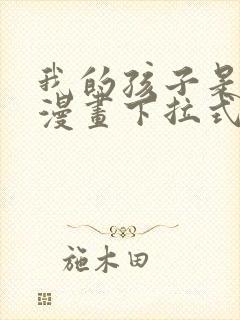 我的孩子
漫畫下拉式
施木田